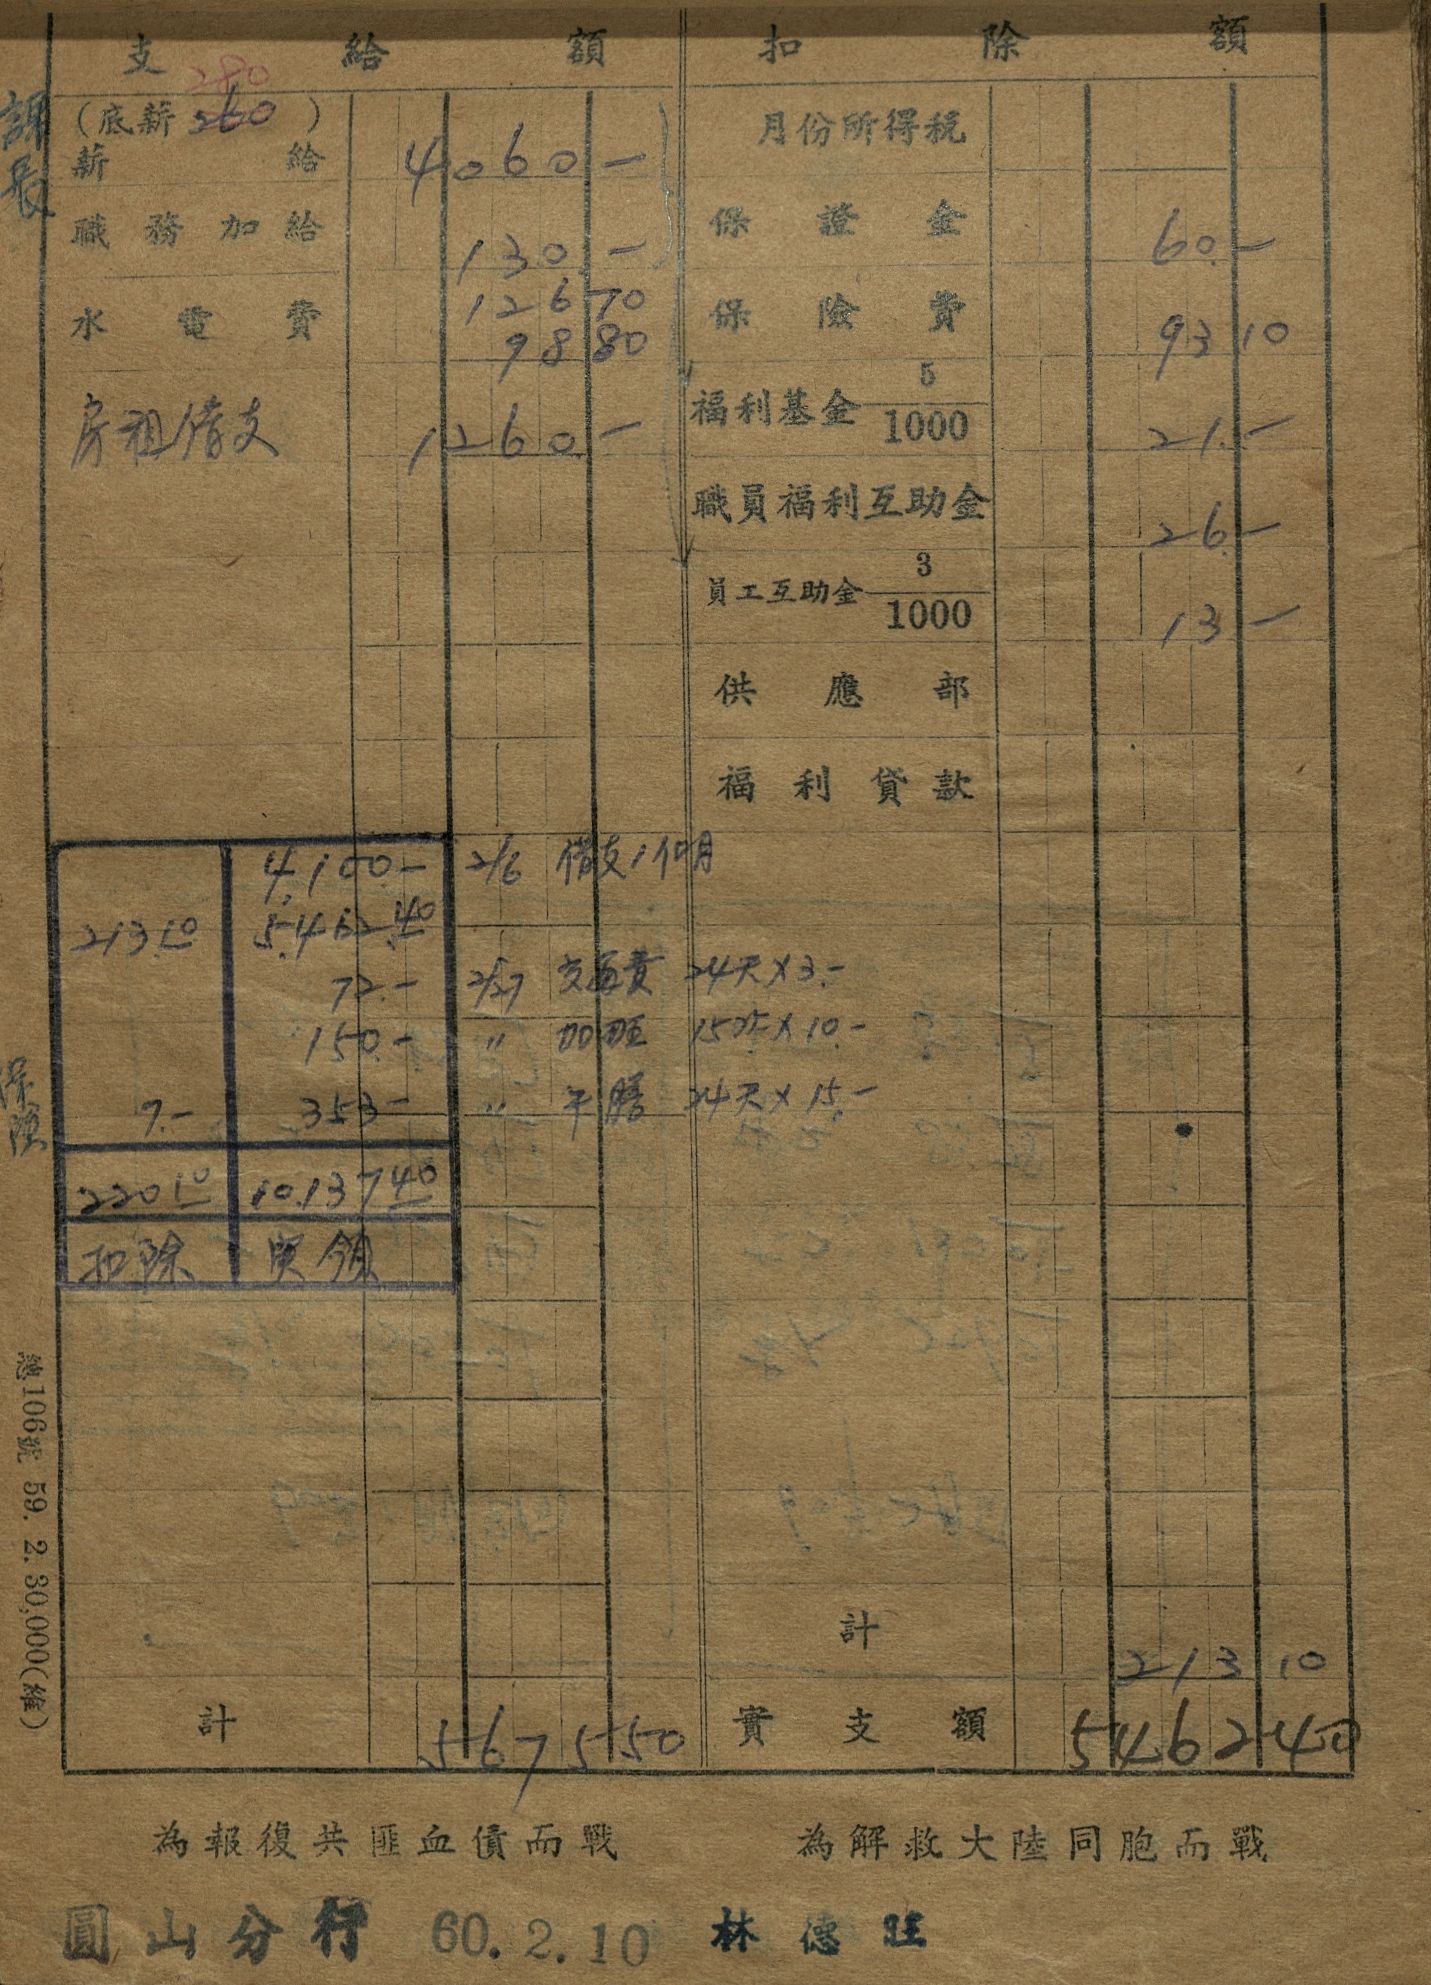 支給額 扣除額
280
(底薪 260)
薪給 4060 —
職務加給 130. —
水電費 126 70
98 80
房租借支 1260 —
月份所得稅
保證金 60. —
保險費 93 10
福利基金 5/1000 21. —
職員福利互助金 26. —
員工互助金 3/1000 13 —
供應部
福利貸款
課長
4,100.— 2/6 借支1個月
213.10 5.462.40
72.— 2/27 交通費 24天×3.—
150.— 〃 加班 15次×10.—
保險 7.— 353— 〃 午膳 24天×15.—
220.10 10.137.40
扣除 実領
計 213 10
計 5675 50 實支額 5462 40
總106號 59. 2. 30,000(維)
為報復共匪血債而戰 為解救大陸同胞而戰
圓山分行 60.2.10 林德旺